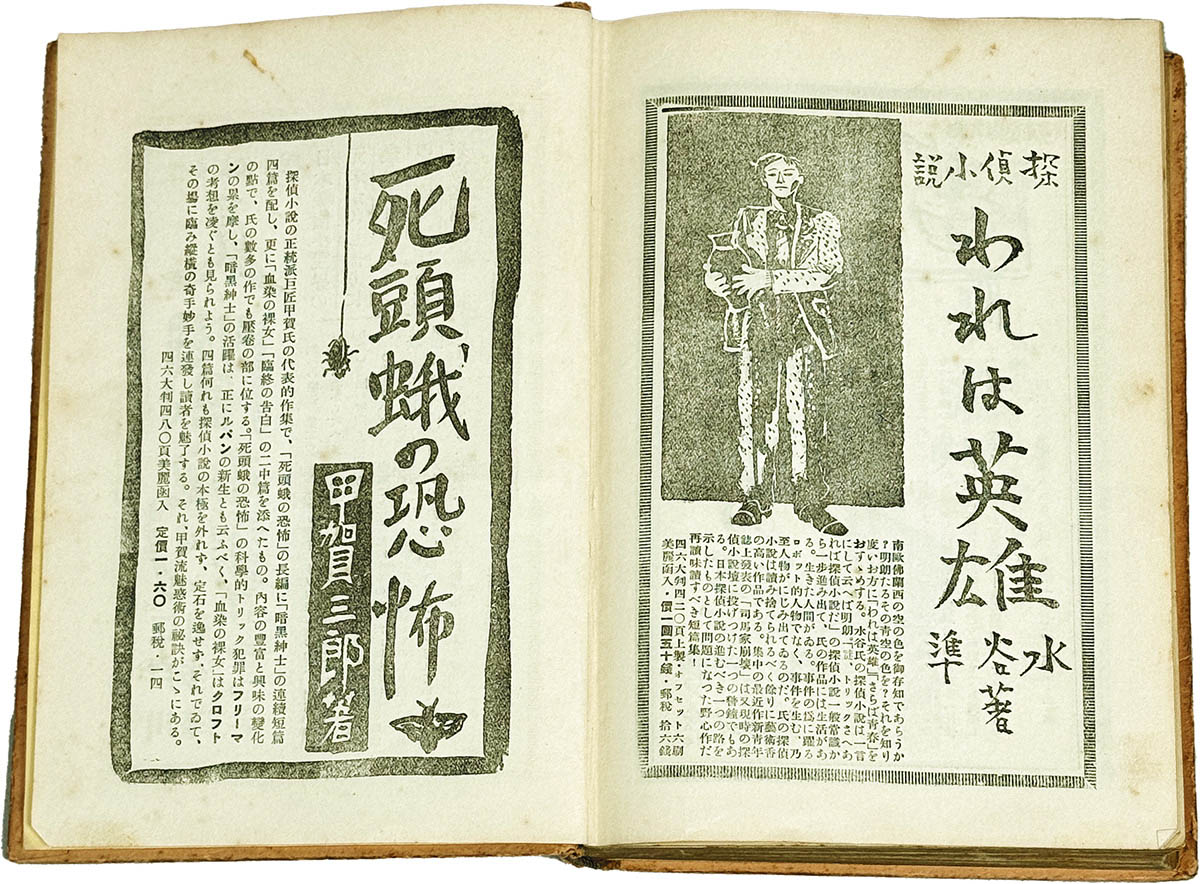 探偵小說
われは英雄
水谷準著
南歐佛蘭西の空の色を御存知であらうか
？明朗たるその靑空の色を？それを知り
度いお方に「われは英雄」「さらば青春」を
おすゝめする。水谷氏の探偵小說は一言
にして云へば明朗一謎、トリックさへあ
れば探偵小說だ」の探偵小說一般常識か
ら一步進み出て、氏の作品には生活があ
る。生きた人間がゐる。事件の爲に躍る
ロボット的人物でなく、事件を生む、乃
至人物がにじみ出てゐるのだ。氏の探偵
小說は讀み捨てられるべく餘りに藝術香
の高い作品である。集中の最近作新靑年
誌上發表の「司馬家崩壞」は又現時の探
偵小說壇に投げつけた一つの警鐘でもあ
る。日本探偵小說の進むべき一つの路を
示したものとして問題になつた野心作だ
再讀味讀すべき短篇集！
四六大判四二〇頁上製・オフセット六刷
美麗函入・價一圓五十錢・郵稅拾六錢
死頭蛾の恐怖
甲賀三郎著
探偵小說の正統派巨匠甲賀氏の代表的作集で、「死頭蛾の恐怖」の長編に「暗黑紳士」の連續短篇
四篇を配し、更に「血染の裸女」「臨終の吿白」の二中篇を添へたもの。內容の豐富と興味の變化
の點で、氏の數多の作でも壓卷の部に位する。「死頭蛾の恐怖」の科學的トリック犯罪はフリーマ
ンの壘を摩し、「暗黑紳士」の活躍は、正にルパンの新生とも云ふべく、「血染の裸女」はクロフト
の考想を凌ぐとも見られよう。四篇何れも探偵小說の本極を外れず、定石を逸せず、それでゐて、
その場に臨み縱橫の奇手妙手を連發し讀者を魅了する。それ、甲賀流魅惑術の祕訣がこゝにある。
四六大判四八〇頁美麗函入 定價一・六〇 郵稅・一四